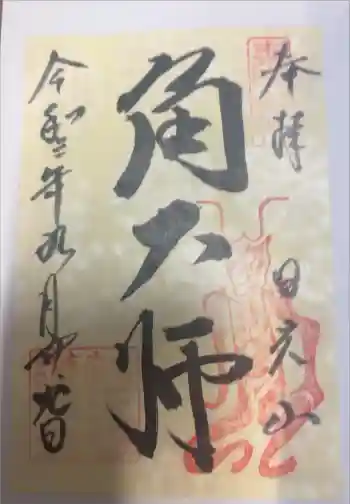 奉拝
日光山
角大師
令和二年九月廿六日